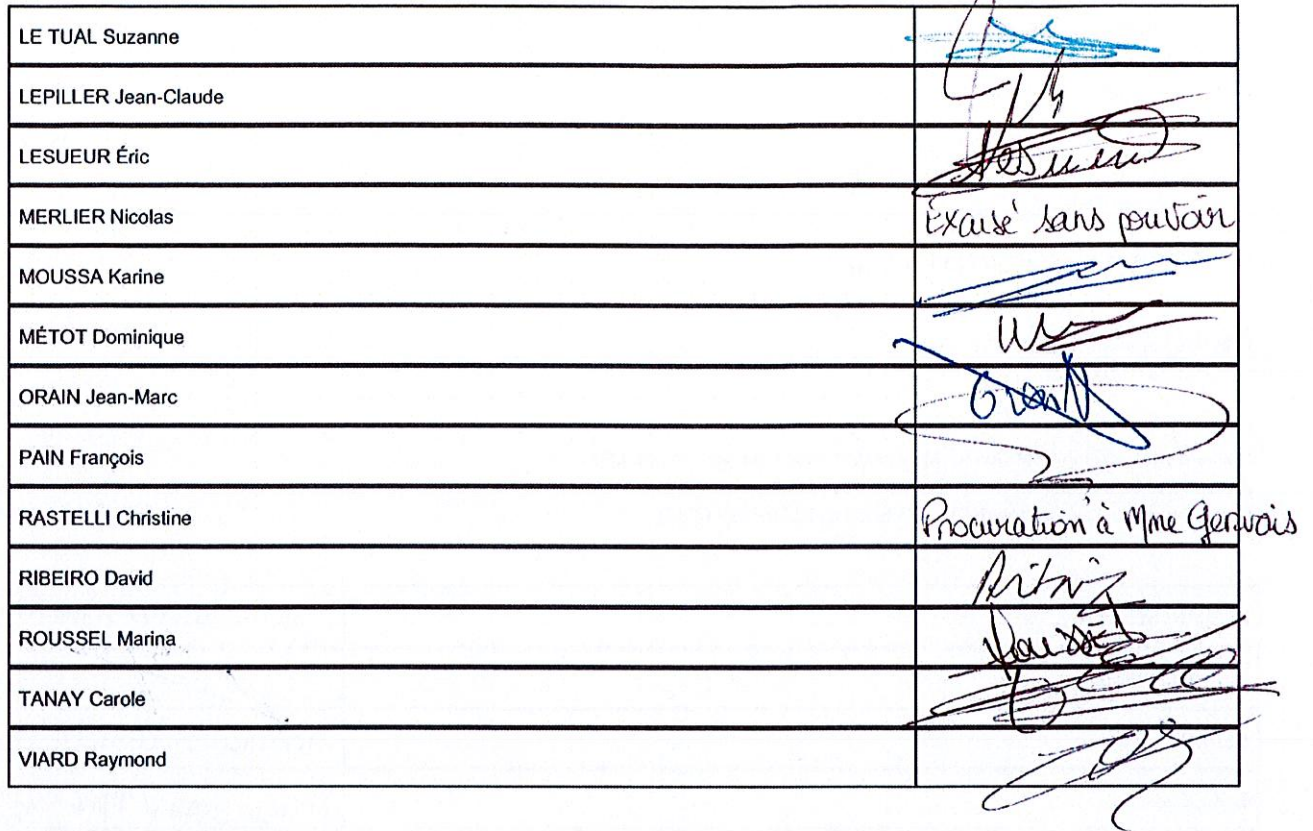 LE TUAL Suzanne
LEPILLER Jean-Claude
LESUEUR Éric
MERLIER Nicolas Excusé sans pouvoir
MOUSSA Karine
MÉTOT Dominique
ORAIN Jean-Marc
PAIN François
RASTELLI Christine Procuration à Mme Gervais
RIBEIRO David
ROUSSEL Marina
TANAY Carole
VIARD Raymond